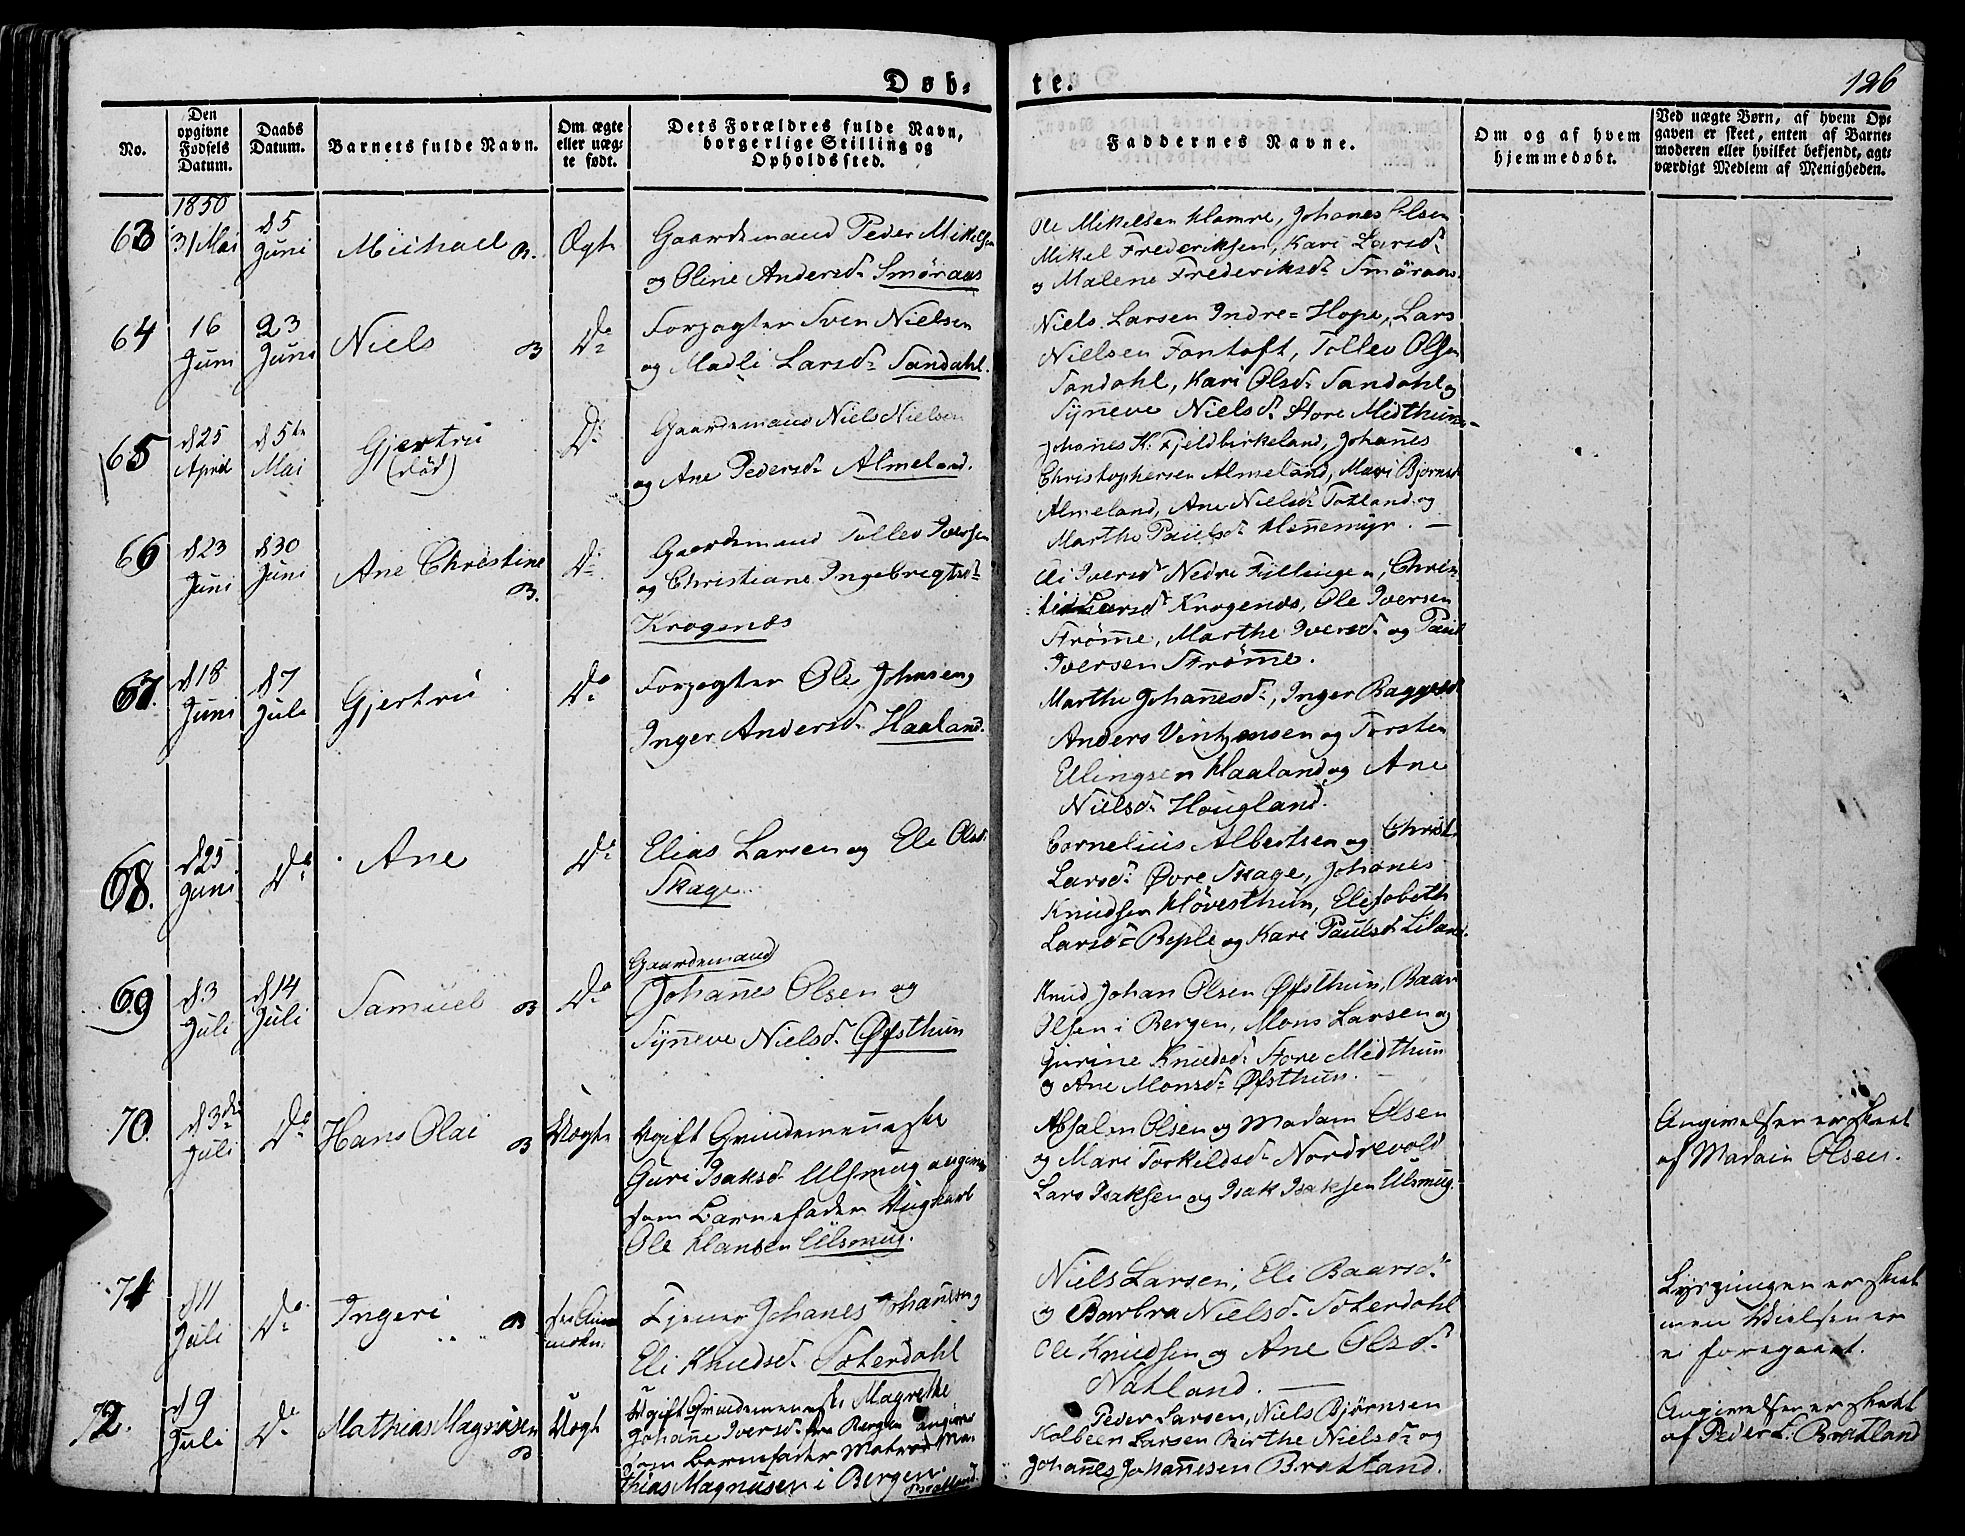 Døb-
te.
126
No.
Den opgivne Fødsels Datum.
Daabs Datum.
Barnets fulde Navn.
Om ægte eller uæg-te født.
Dets Forældres fulde Navn, borgerlige Stilling og Opholdssted.
Faddernes Navne.
Om og af hvem hjemmedøbt.
Ved uægte Børn, af hvem Op-
gaven er skeet, enten af Barne-
moderen eller hvilket bekjendt, agt-
værdigt Medlem af Menigheden.
1850
63
31 Mai
d 5 Juni
Michael B.
Ægte
Gaardemand Peder Mikelsen
og Oline Andersd. Smøraas
Ole Mikelsen Hamre, Johanes Olsen
Mikel Frederiksen, Kari Larsd.
og Malene Frederiksd. Smøraas
64
16 Juni
23 Juni
Niels B
Do
Forpagter Sven Nielsen
og Madli Larsd. Sandahl.
Niels Larsen Indre-Hope, Lars
Nielsen Fantoft, Tollev Olsen
Sandahl, Kari Olsd. Sandahl og
Syneve Nielsd. Store Midthun
65
d 25 April
d 5te Mai
Gjertru
(død)
Do
Gaardemand Niels Nielsen
og Ane Pedersd. Almeland.
Johanes K. Fjeldbirkeland, Johanes
Christophersen Almeland, Mari Bjørnsd.
Almeland, Ane Nielsd. Totland og
Marthe Paulsd. Hennemyr. —
66
d 23 Juni
d 30 Juni
Ane Christine
B.
Do
Gaardemand Tollev Iversen
og Christiane Ingebregtsd.
Krogenæs
Iversd. Nedre Fyllingen, Chris-
Larsd. Krogenæs, Ole Iversen
Strømme, Marthe Iversd. og Paul
Iversen Strømme.
67.
d 18 Juni
d 7 Juli
Gjertru
Do
Forpagter Ole Johnsen og
Inger Andersd. Haaland.
Marthe Johanesd., Inger Baggesd.
Anders Vintzensen og Torsten
Ellingsen Haaland og Ane
Nielsd. Hougland.
68.
d 25 Juni
Do
Ane
Do
Elias Larsen og Eli Olsd.
Skage.
Cornelius Albertsen og Christ.
Larsd. Øvre Skage, Johanes
Knudsen Høvesthun, Elesabeth
Larsd. Reple og Kari Paulsd. Liland.
69
d 3 Juli
d 14 Juli
Samuel B
Do
Gaardemand
Johanes Olsen og
Syneve Nielsd. Øfsthun
Knud Johan Olsen Øfsthun, Baar
Olsen i Bergen, Mons Larsen og
Gurine Knudsd. Store Midthun
og Ane Monsd. Øfsthun. —
70.
d 3die Juli
Do
Hans Olai B
Uægte
Ugift Qvindemenneske
Guri Isaksd. Ulsmug angiven
som Barnefader Ungkarl
Ole Hansen Ulsmug.
Absalon Olsen og Madam Olsen
og Mari Torkildsd. Nordrevold
Lars Isaksen og Isak Isaksen Ulsmug.
Angivelsen er skeet
af Madam Olsen.
71
d 11 Juli
Do
Ingeri B
Tjener Johanes Johansen og
Eli Knudsd. Sæterdahl
Niels Larsen, Eli Baarsd.
og Barbra Nielsd. Sæterdahl
Ole Knudsen og Ane Olsd.
Natland. —
Lysningen er skeet
men Vielsen er
ei foregaaet.
72.
d 9 Juli
Do
Mathias Magnusen
B
Uægt
Ugift Qvindemenneske Magrethe
Johanne Iversd. fra Bergen angiven
som Barnefader Matros Ma-
thias Magnusen i Bergen. Bratland.
Peder Larsen, Niels Bjørnsen
Kolbeen Larsen Birthe Nielsd. og
Johanes Johanesen Bratland.
Angivelsen er skeet
af Peder L. Bratland